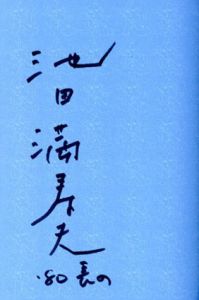 池田満寿夫
'80 長の